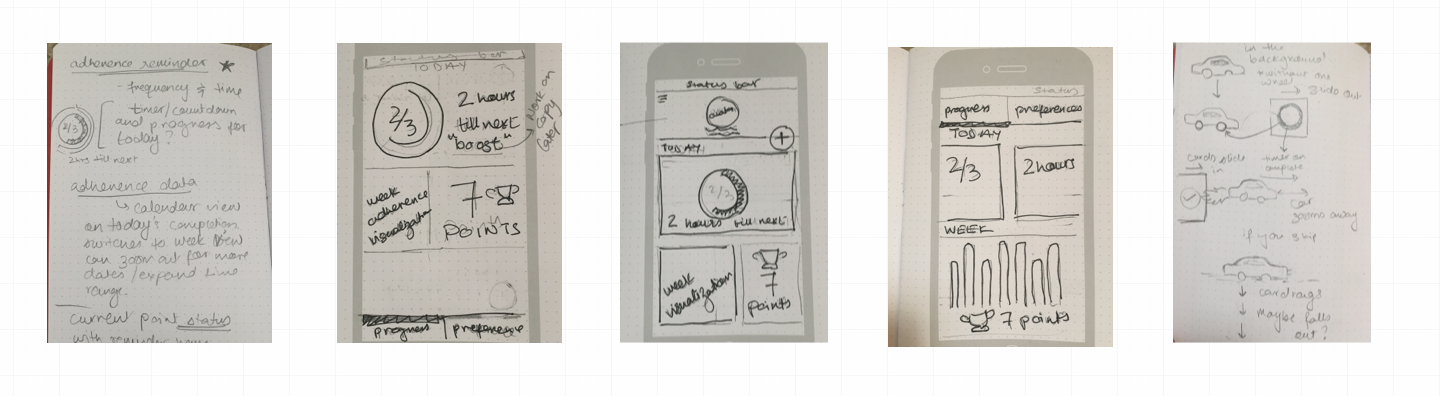 adherence reminder
- frequency & time
timer/countdown
and progress for
today?
2/3
2hrs till next
adherence data
↳ calendar view
on today's completion,
switches to week view
can zoom out for more
dates/expand time
range.
current point status
with reminder
status bar
TODAY
2/3
2 hours
till next
"boost"
→ work on
copy
later
week
adherence
visualization
7
POINTS
progress
preference
status bar
avatar
+
TODAY
2/3
2 hours till next
week
visualization
7
points
status
progress
preferences
TODAY
2/3
2 hours
WEEK
7 points
in the
background
*without one
wheel
→ slide out
cards slide
in
timer on
complete
car
zooms away
if you skip
car drags
maybe falls
out?